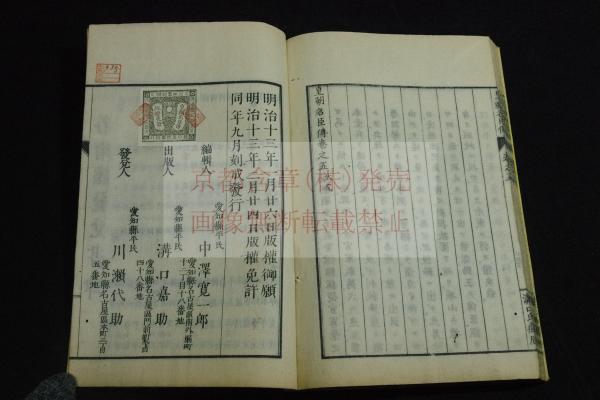 皇朝名臣傳巻之五大尾
明治十三年一月廿六日版權御願
明治十三年二月廿四日版權免許
同年九月刻成發行
編輯人
愛知縣平民
中澤寛一郎
出版人
愛知縣平民
溝口嘉助
愛知縣名古屋區門前町
四十八番地
發兌人
愛知縣平民
川瀬代助
愛知縣名古屋區本町二丁目
五番地
京都全章(株)発売
画像無断転載禁止